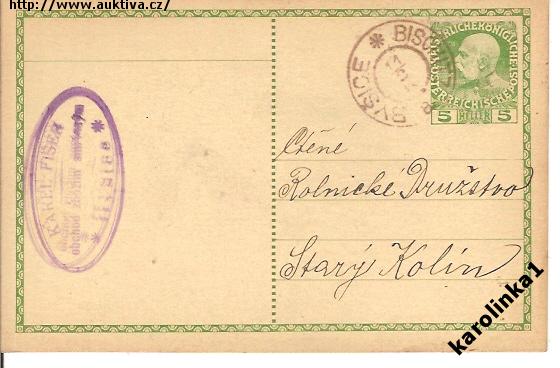 http://www.auktiva.cz/
KAREL FIŠER
obchod
BYŠICE * BISCHITZ
KAISERLICHEKÖNIGLICHE
ÖSTERREICHISCHE POST
5 HELLER 5
Ctěné
Rolnické Družstvo
Starý Kolín
karolinka1